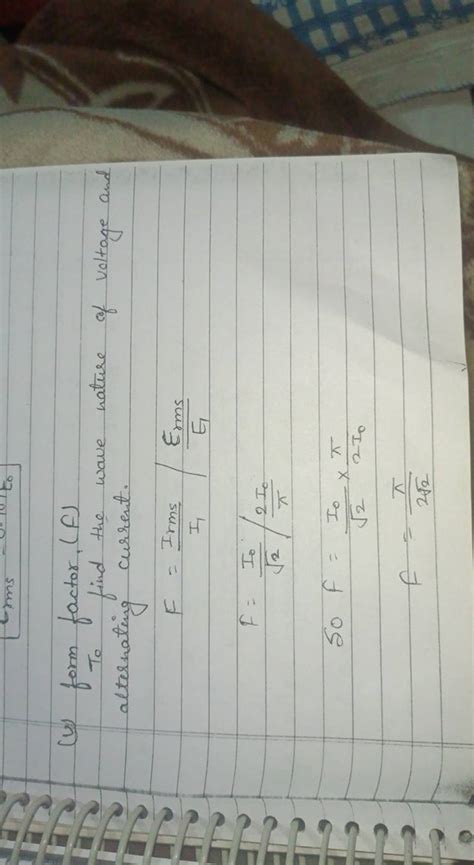 (v) form factor, (f)
To find the wave nature of voltage and
alternating current.
F = Irms/I1 / Erms/E1
f = I0/√2 / 2I0/π
SO F = I0/√2 × π/2I0
f = π/2√2